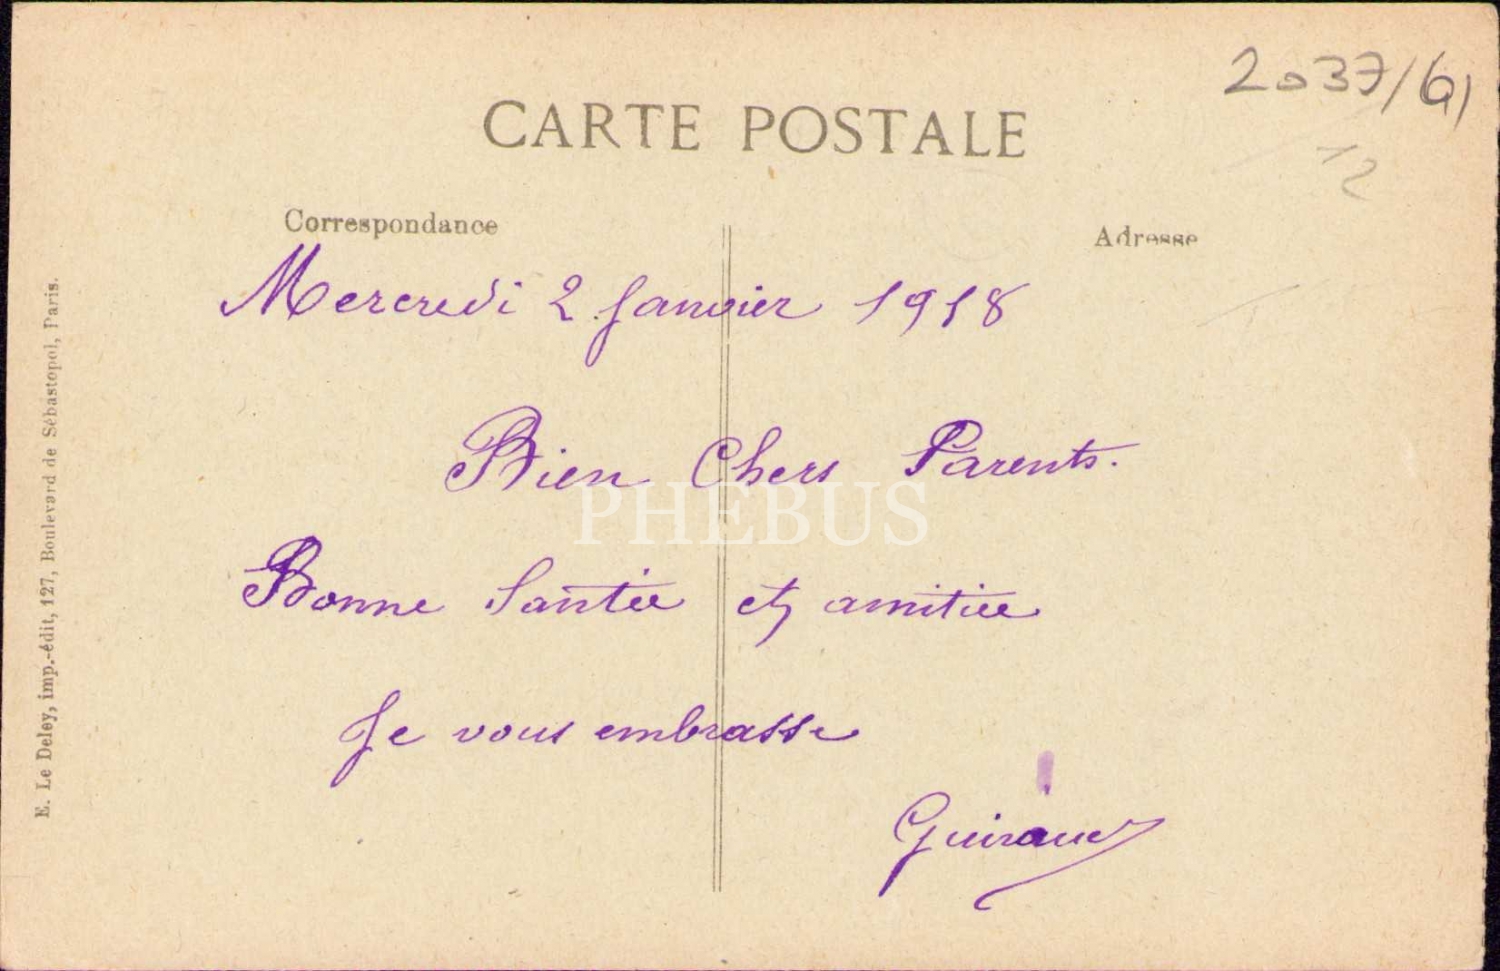 2037/61
12
CARTE POSTALE
Correspondance
Adresse
Mercredi 2 Janvier 1918
Bien Chers Parents.
PHEBUS
Bonne Santée et amitiée
Je vous embrasse
Guiraud
E. Le Deley, imp.-édit, 127, Boulevard de Sébastopol, Paris.